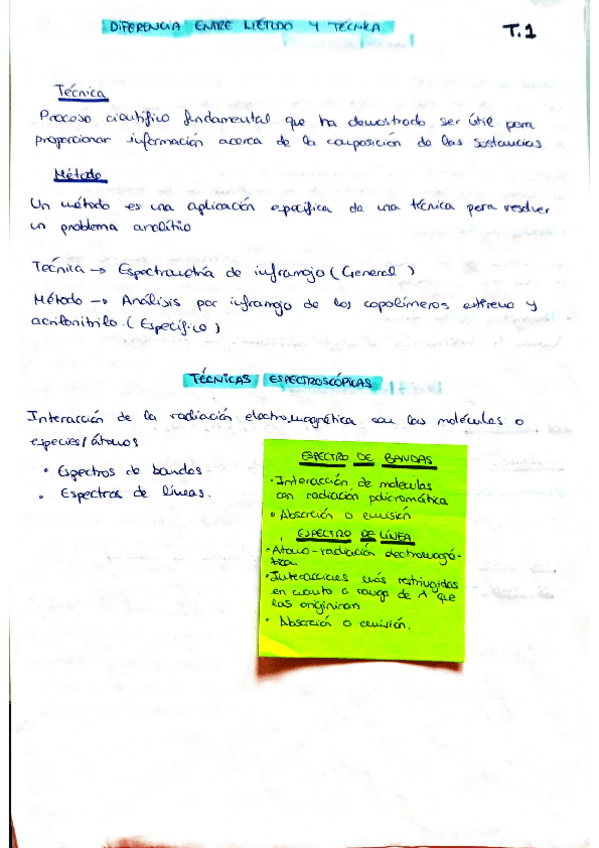 DIFERENCIA ENTRE MÉTODO Y TÉCNICA
T.1
Técnica
Proceso científico fundamental que ha demostrado ser útil para
proporcionar información acerca de la composición de las sustancias
Método
Un método es una aplicación específica de una técnica para resolver
un problema analítio
Técnica → Espectrometría de infrarrojo (General)
Método → Análisis por infrarrojo de los copolímeros estireno y
acrilonitrilo. (Específico)
TÉCNICAS ESPECTROSCÓPICAS
Interacción de la radiación electromagnética con las moléculas o
especies/átomos
• Espectros de bandas
• Espectros de líneas.
ESPECTRO DE BANDAS
• Interacción de moleculas
con radiación policromática
• Absorción o emisión
ESPECTRO DE LÍNEA
• Átomo-radiación electromagné-
tica
• Interacciones más restringidas
en cuanto a rango de λ que
las originan
• Absorción o emisión.